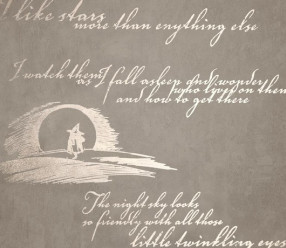 I like stars
more than enything else
I watch them
as I fall asleep and wonder
who lives on them
and how to get there
The night sky looks
so friendly with all those
little twinkling eyes